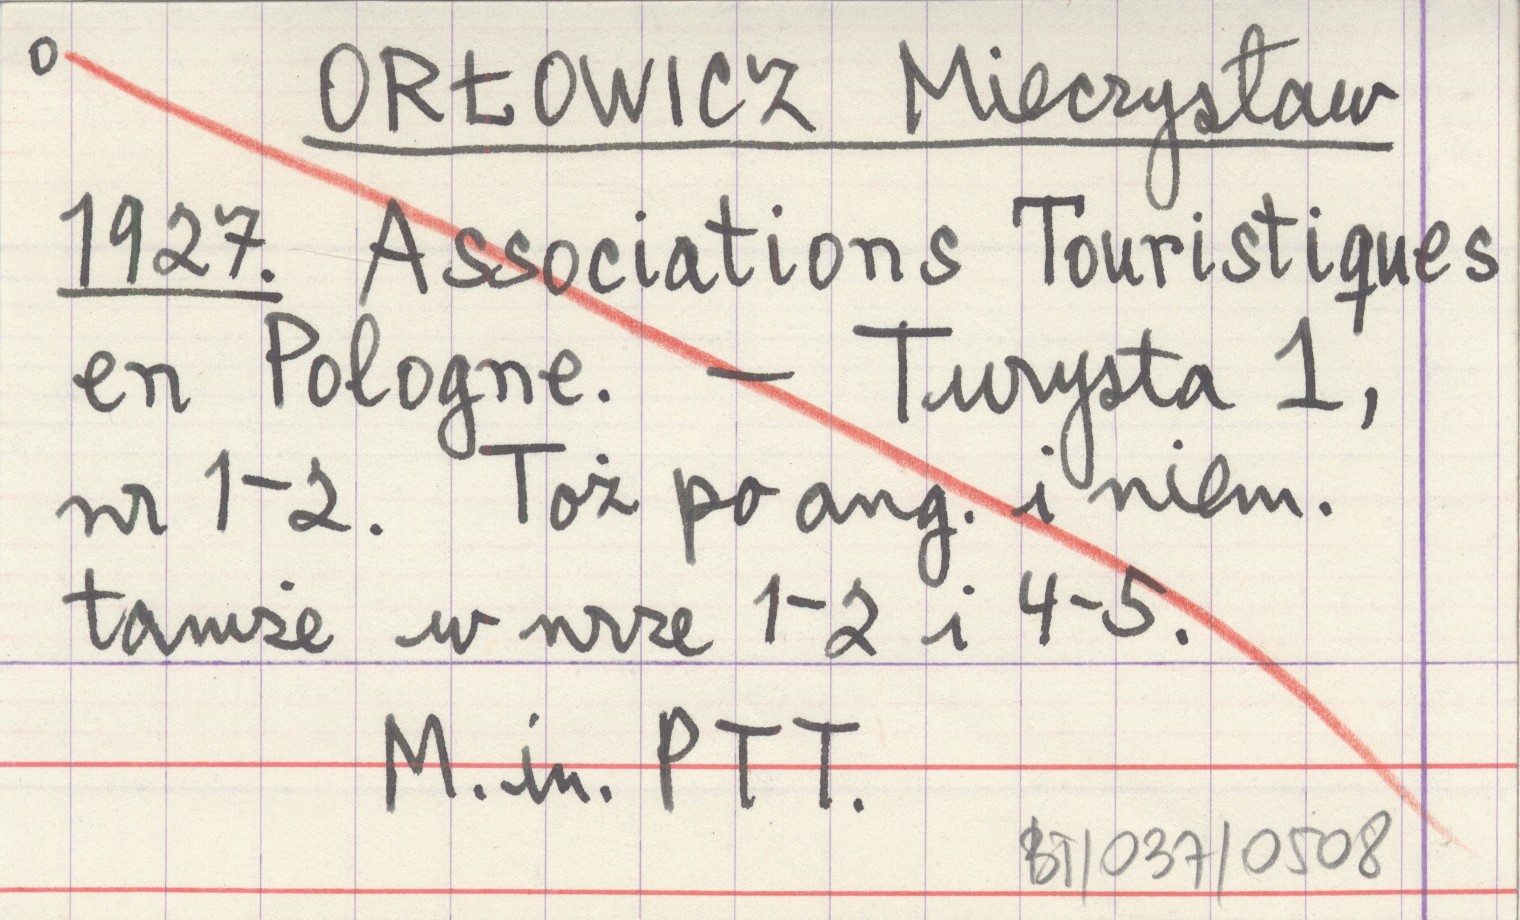 o ORŁOWICZ Mieczysław
1927. Associations Touristiques
en Pologne. — Turysta 1,
nr 1-2. Toż po ang. i niem.
tamże w nrze 1-2 i 4-5.
M.in. PTT.
BT/037/0508